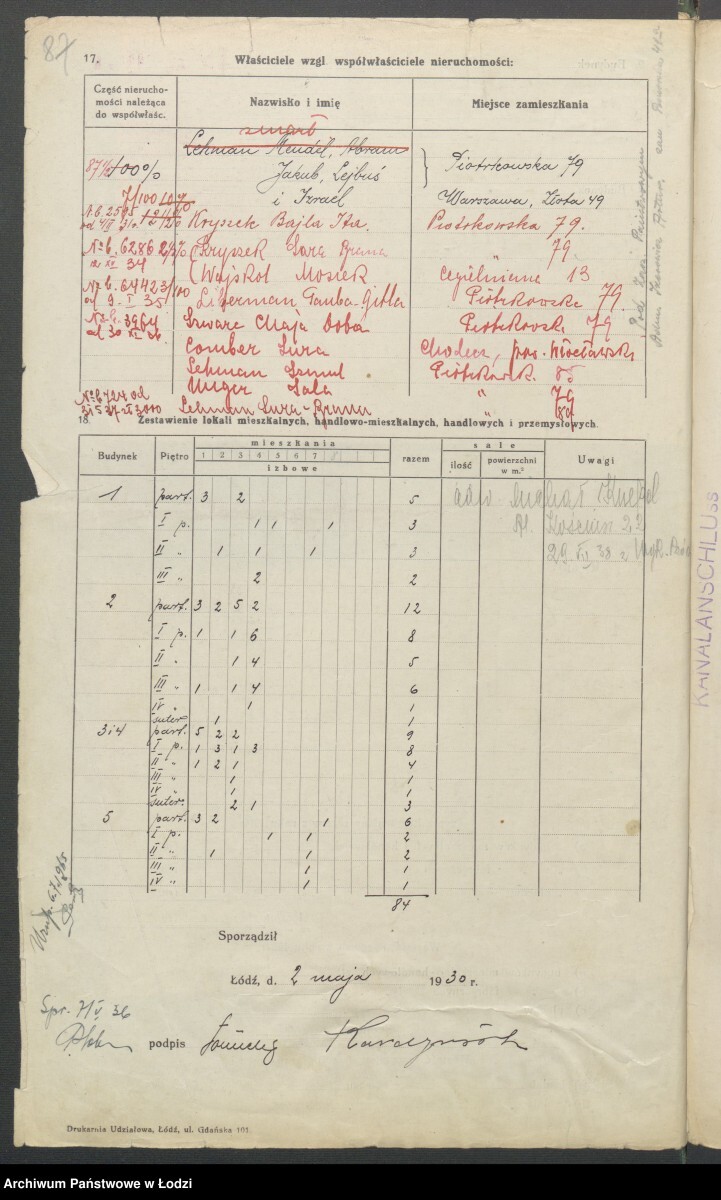 87
17. Właściciele wzgl współwłaściciele nieruchomości:
Część nierucho-
mości należąca
do współwłaśc.
Nazwisko i imię
Miejsce zamieszkania
zmarł
Lehman Mendel, Abram
87% 100% Jakub, Lejbuś } Piotrkowska 79
i Izrael Warszawa, Złota 49
7/100
Kryszek Bajla Ita. Piotrkowska 79.
Kryszek Sara Brana 79.
34 Wajskol Mosiek Cegielniana 13
Liberman Tauba-Gitla Piotrkowska 79.
Szwarc Chaja Doba Piotrkowsk 79
Comber Sura Chodecz, pow. Włocławsk
Lehman Szmul Piotrkowsk. 85
Unger Sala " 79
Lehman Sura-Brana "
18. Zestawienie lokali mieszkalnych, handlowo-mieszkalnych, handlowych i przemysłowych.
Budynek Piętro mieszkania razem sale Uwagi
1 2 3 4 5 6 7 8
izbowe
ilość powierzchni w m.²
1 part. 3 2 5 adw.
I p. 1 1 1 3 Al. Kościus 22
II " 1 1 1 3
III " 2 2
2 part. 3 2 5 2 12
I p. 1 1 6 8
II " 1 4 5
III " 1 1 4 6
IV " 1 1
suter. 1 1
3i4 part. 5 2 2 9
I p. 1 3 1 3 8
II " 1 2 1 4
III " 1 1
IV " 1 1
suter. 2 1 3
5 part. 3 2 1 6
I p. 1 1 2
II " 1 1 2
III " 1 1
IV " 1 1
84
Sporządził
Łódź, d. 2 maja 1930 r.
Spr. 7/V 36
podpis
Drukarnia Udziałowa, Łódź, ul. Gdańska 101.
KANALANSCHLUSS
Archiwum Państwowe w Łodzi